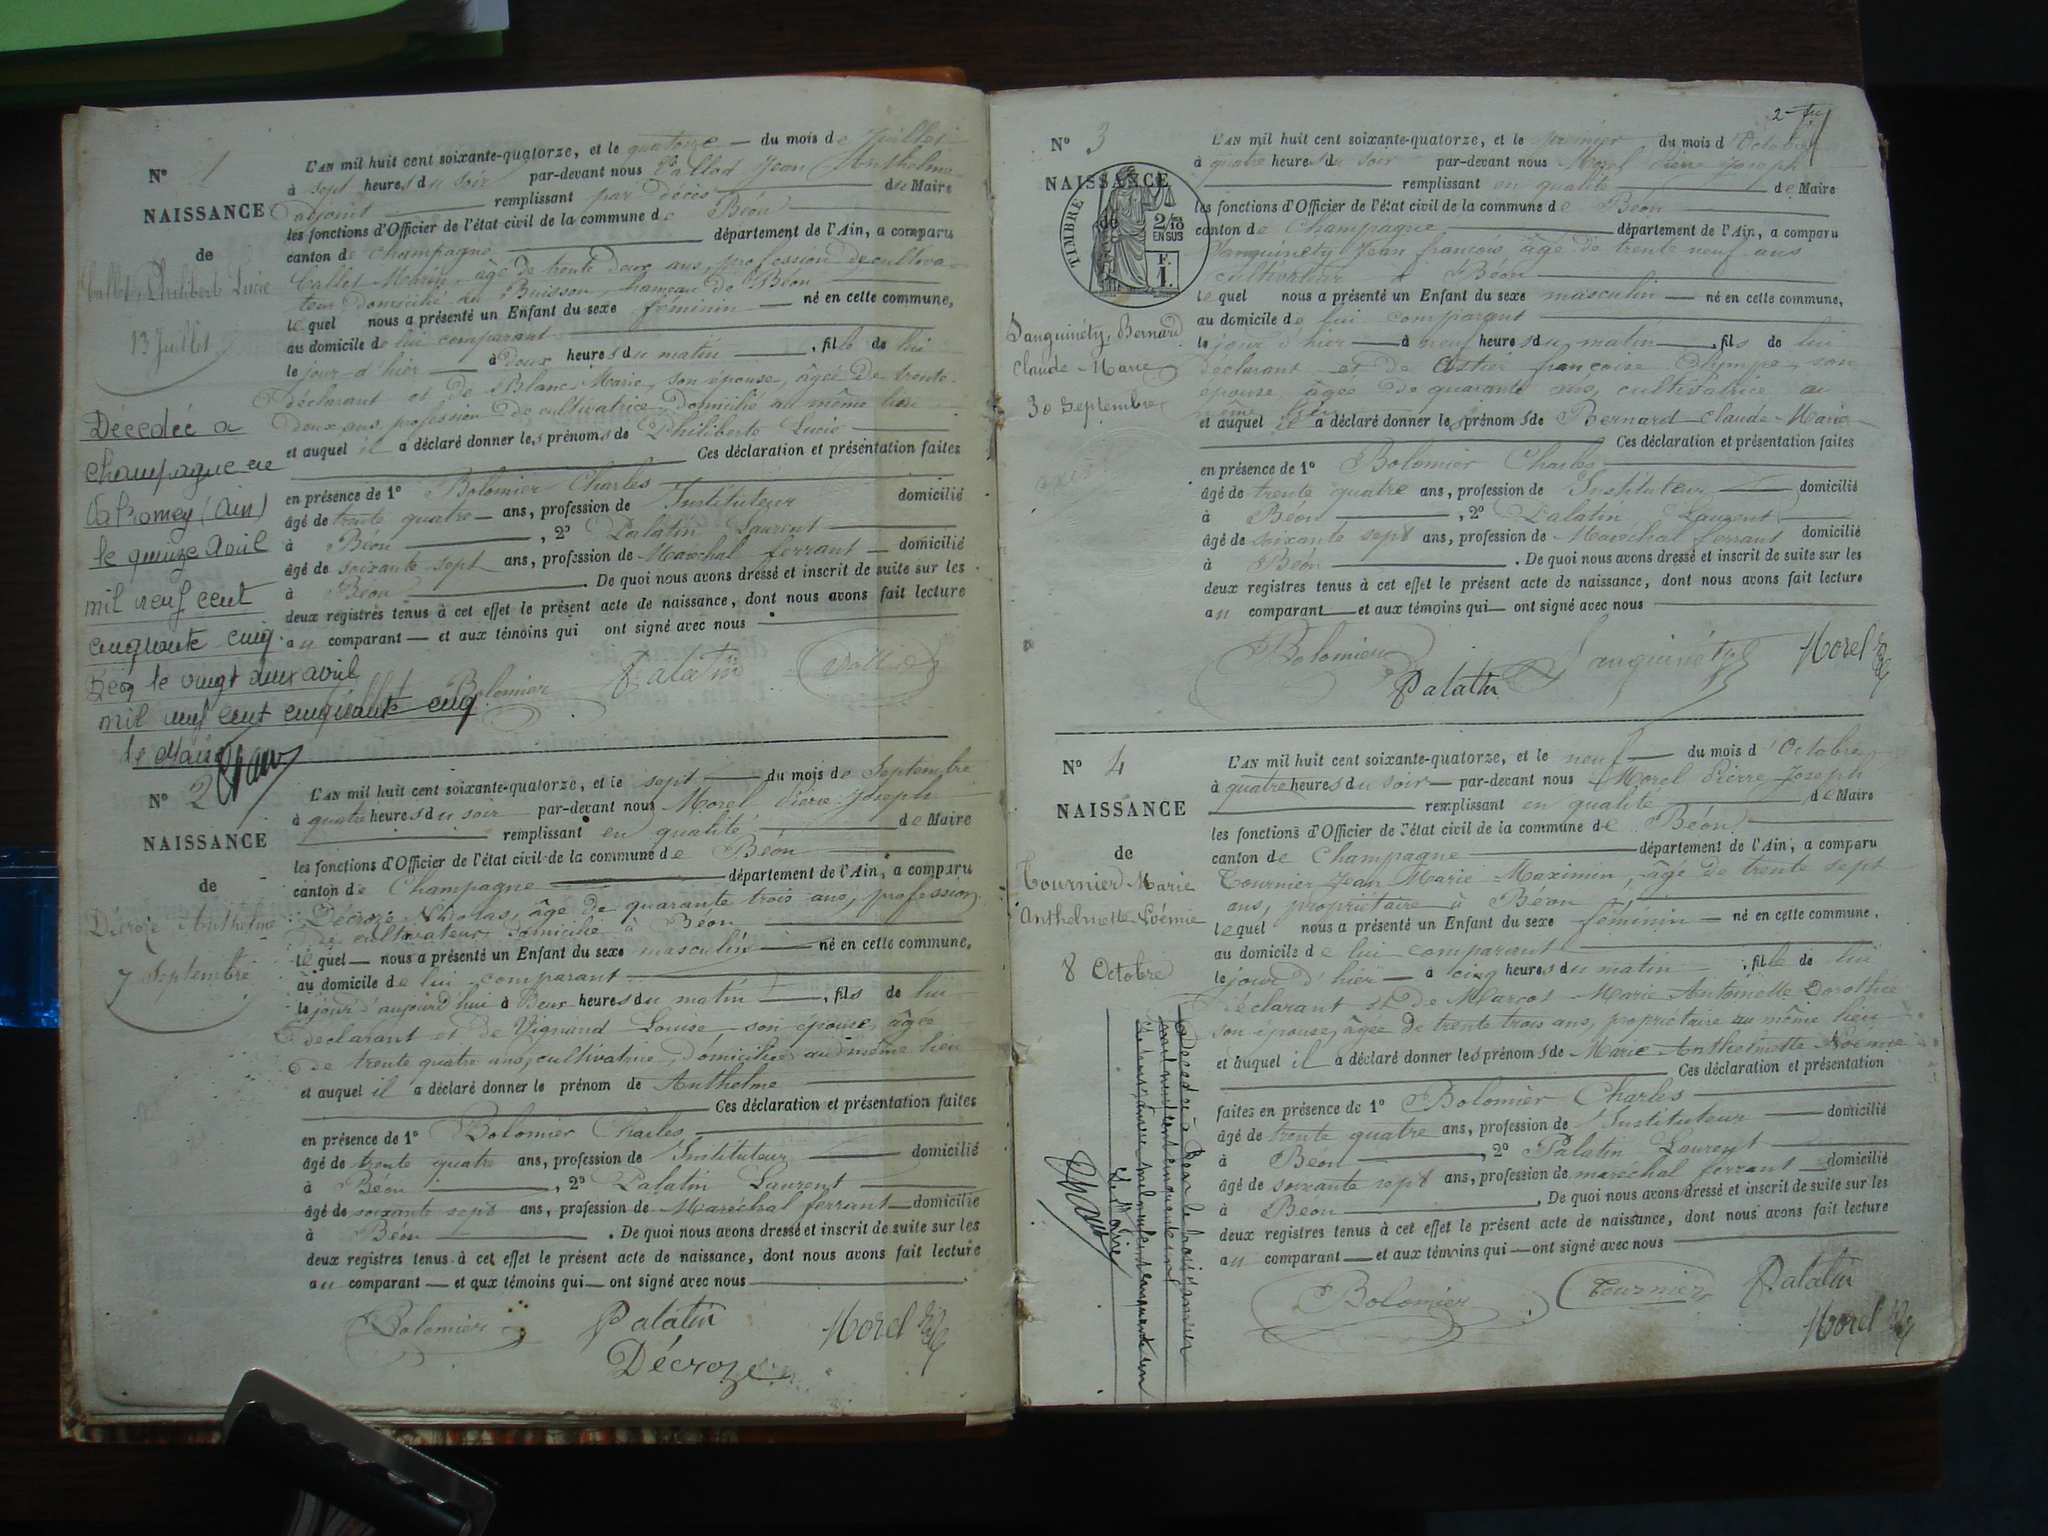 N° 1
NAISSANCE
de
Callet, Philiberte Lucie
13 Juillet
Décédée à
Champagne en
Valromey (Ain)
le quinze avril
mil neuf cent
cinquante cinq.
Béon le vingt deux avril
mil neuf cent cinquante cinq
le Maire
L'AN mil huit cent soixante-quatorze, et le quatorze du mois de Juillet
à sept heures du soir par-devant nous Vallod Jean Anthelme
adjoint remplissant par décès de Maire
les fonctions d'Officier de l'état civil de la commune de Béon
canton de Champagne département de l'Ain, a comparu
Callet Marin, âgé de trente deux ans, profession de cultiva-
teur domicilié au Buisson, hameau de Béon
lequel nous a présenté un Enfant du sexe féminin né en cette commune,
au domicile de lui comparant
le jour d'hier à deux heures du matin, fille de lui
déclarant et de Blanc Marie, son épouse, âgée de trente
deux ans, profession de cultivatrice, domicilié au même lieu
et auquel il a déclaré donner les prénoms de Philiberte Lucie
Ces déclaration et présentation faites
en présence de 1° Bolomier Charles
âgé de trente quatre ans, profession de Instituteur domicilié
à Béon, 2° Palatin Laurent
âgé de soixante sept ans, profession de Maréchal ferrant domicilié
à Béon. De quoi nous avons dressé et inscrit de suite sur les
deux registres tenus à cet effet le présent acte de naissance, dont nous avons fait lecture
au comparant et aux témoins qui ont signé avec nous
Bolomier Palatin Vallod
N° 2
NAISSANCE
de
Décroze Anthelme
7 Septembre
L'AN mil huit cent soixante-quatorze, et le sept du mois de Septembre
à quatre heures du soir par-devant nous Morel Pierre Joseph
remplissant en qualité de Maire
les fonctions d'Officier de l'état civil de la commune de Béon
canton de Champagne département de l'Ain, a comparu
Décroze Nicolas, âgé de quarante trois ans, profession
de cultivateur, domicilié à Béon
lequel nous a présenté un Enfant du sexe masculin né en cette commune,
au domicile de lui comparant
le jour d'aujourd'hui à deux heures du matin, fils de lui
déclarant et de Vignand Louise son épouse, âgée
de trente quatre ans, cultivatrice, domiciliée au même lieu
et auquel il a déclaré donner le prénom de Anthelme
Ces déclaration et présentation faites
en présence de 1° Bolomier Charles
âgé de trente quatre ans, profession de Instituteur domicilié
à Béon, 2° Palatin Laurent
âgé de soixante sept ans, profession de Maréchal ferrant domicilié
à Béon. De quoi nous avons dressé et inscrit de suite sur les
deux registres tenus à cet effet le présent acte de naissance, dont nous avons fait lecture
au comparant et aux témoins qui ont signé avec nous
Bolomier Palatin Morel
Décroze
N° 3
NAISSANCE
de
TIMBRE
2/10
EN SUS
F.
1.
Sanguinéty, Bernard
Claude-Marie
30 Septembre
L'AN mil huit cent soixante-quatorze, et le premier du mois d'Octobre
à quatre heures du soir par-devant nous Morel Pierre Joseph
remplissant en qualité de Maire
les fonctions d'Officier de l'état civil de la commune de Béon
canton de Champagne département de l'Ain, a comparu
Sanguinéty Jean françois, âgé de trente neuf ans
cultivateur à Béon
lequel nous a présenté un Enfant du sexe masculin né en cette commune,
au domicile de lui comparant
le jour d'hier à neuf heures du matin, fils de lui
déclarant et de Astier françoise Olympe, son
épouse âgée de quarante ans, cultivatrice au
même lieu
et auquel il a déclaré donner les prénoms de Bernard Claude-Marie
Ces déclaration et présentation faites
en présence de 1° Bolomier Charles
âgé de trente quatre ans, profession de Instituteur domicilié
à Béon, 2° Palatin Laurent
âgé de soixante sept ans, profession de Maréchal ferrant domicilié
à Béon. De quoi nous avons dressé et inscrit de suite sur les
deux registres tenus à cet effet le présent acte de naissance, dont nous avons fait lecture
au comparant et aux témoins qui ont signé avec nous
Bolomier Palatin Sanguinéty Morel
N° 4
NAISSANCE
de
Tournier Marie
Anthelmette Noémie
8 Octobre
Le Maire
L'AN mil huit cent soixante-quatorze, et le neuf du mois d'Octobre
à quatre heures du soir par-devant nous Morel Pierre Joseph
remplissant en qualité de Maire
les fonctions d'Officier de l'état civil de la commune de Béon
canton de Champagne département de l'Ain, a comparu
Tournier Jean Marie Maximin, âgé de trente sept
ans, propriétaire à Béon
lequel nous a présenté un Enfant du sexe féminin né en cette commune,
au domicile de lui comparant
le jour d'hier à cinq heures du matin, fille de lui
déclarant et de Marcot Marie Antoinette Dorothée
son épouse, âgée de trente trois ans, propriétaire au même lieu
et auquel il a déclaré donner les prénoms de Marie Anthelmette Noémie
Ces déclaration et présentation
faites en présence de 1° Bolomier Charles
âgé de trente quatre ans, profession de Instituteur domicilié
à Béon, 2° Palatin Laurent
âgé de soixante sept ans, profession de maréchal ferrant domicilié
à Béon. De quoi nous avons dressé et inscrit de suite sur les
deux registres tenus à cet effet le présent acte de naissance, dont nous avons fait lecture
au comparant et aux témoins qui ont signé avec nous
Bolomier Tournier Palatin
Morel